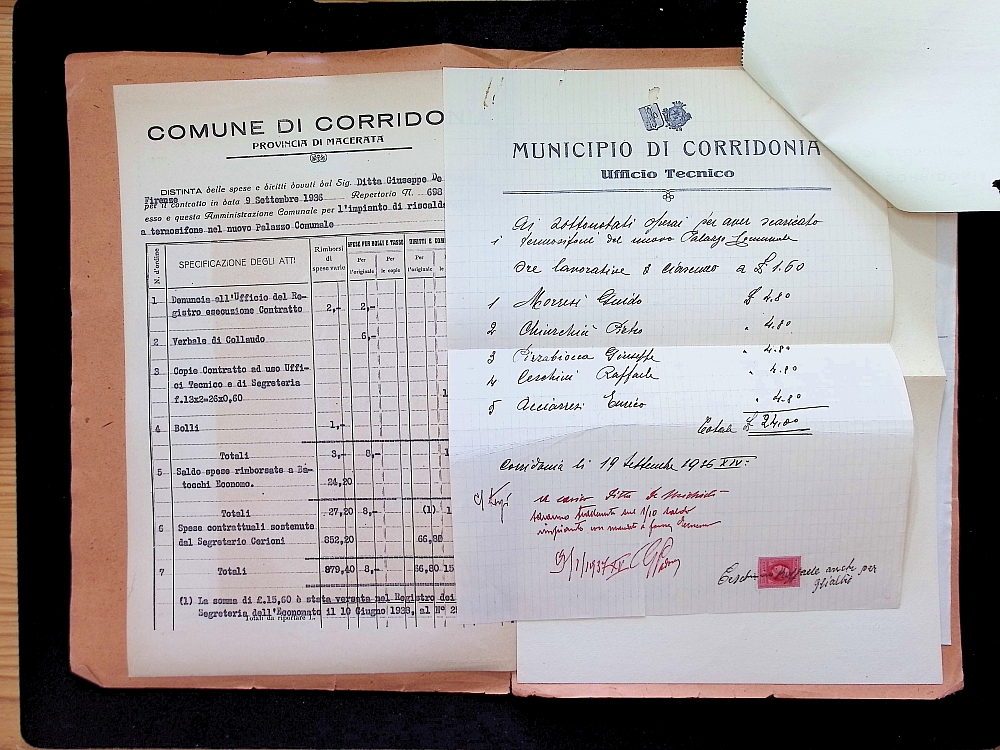 COMUNE DI CORRIDO
PROVINCIA DI MACERATA
DISTINTA delle spese e diritti dovuti dal Sig. Ditta Giuseppe De
Firenze
per il contratto in data 9 Settembre 1936 Repertorio N. 698
esso e questa Amministrazione Comunale per l'impianto di riscald
a termosifone nel nuovo Palazzo Comunale
N. d'ordine
SPECIFICAZIONE DEGLI ATTI
Rimborsi di spese varie
SPESE PER BOLLI E TASSE
Per l'originale
Per le copie
DIRITTI E
Per l'originale
1 Denuncia all'Ufficio del Re-
gistro esecuzione Contratto 2,- 2,-
2 Verbale di Collaudo 6,-
3 Copie Contratto ad uso Uffi-
ci Tecnico e di Segreteria
f.13x2=26x0,60
4 Bolli 1,-
Totali 3,- 8,-
5 Saldo spese rimborsate a Ba-
tocchi Economo. 24,20
Totali 27,20 8,- (1)
6 Spese contrattuali sostenute
dal Segretario Cerioni 852,20 66,80
7 Totali 879,40 8,- 66,80 15
(1) La somma di £.15,60 è stata versata nel Registro dei
Segreteria dell'Economato il 10 Giugno 1938, al N°
Totali da riportare L.
MUNICIPIO DI CORRIDONIA
Ufficio Tecnico
Ai sottonotati operai per aver scaricato
i termosifoni del nuovo Palazzo Comunale
Ore lavorative 8 ciascuno a £ 1.60
1 Morresi Guido £ 4.80
2 Chiurchiù 4.80
3 Pizzabiocca Giuseppe 4.80
4 Ceschini Raffaele 4.80
5 Acciarresi Enrico 4.80
Totale £ 24.00
Corridonia li 19 Settembre 1936 XIV:
a carico Ditta De Micheli
saranno trattenute sul 1/10 saldo
impianto con mandato a favore
9/1/1937 XV
Raffaele anche per
gli altri